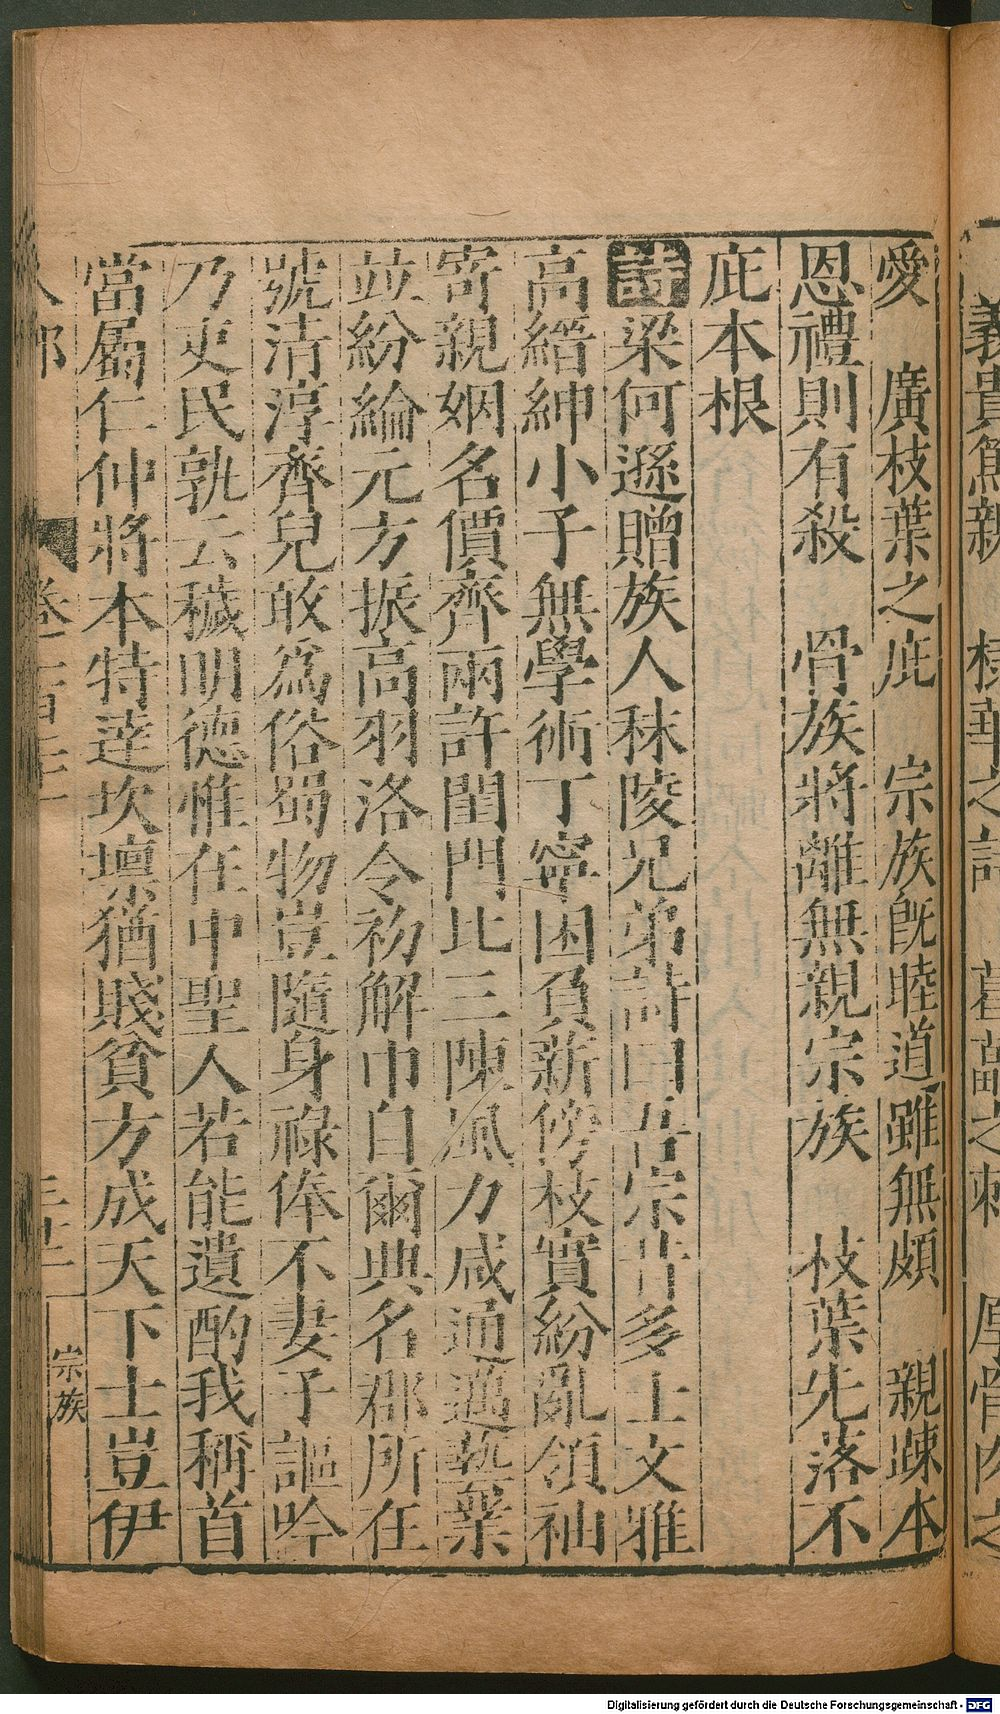 義貴篤親 棣華之 葛藟之刺 厚骨肉之
愛 廣枝葉之庇 宗族旣睦道雖無頗 親踈本
恩禮則有殺 骨族將離無親宗族 枝葉先落不
庇本根
詩梁何遜贈族人秣陵兄弟詩曰吾宗昔多士文雅
高縉紳小子無學術丁寧困負薪傍枝實紛亂領袖
寄親姻名價齊兩許閨門比三陳風力咸通邁藝業
並紛綸元方振高羽洛令初解巾自爾典名郡所在
號清淳齊兒敢爲俗蜀物豈隨身祿俸不妻子謳吟
乃吏民孰云穢明德惟在中聖人若能遺酌我稱首
當屬仁仲將本特達坎壈猶賤貧方成天下士豈伊
人部
宗族
Digitalisierung gefördert durch die Deutsche Forschungsgemeinschaft - DFG